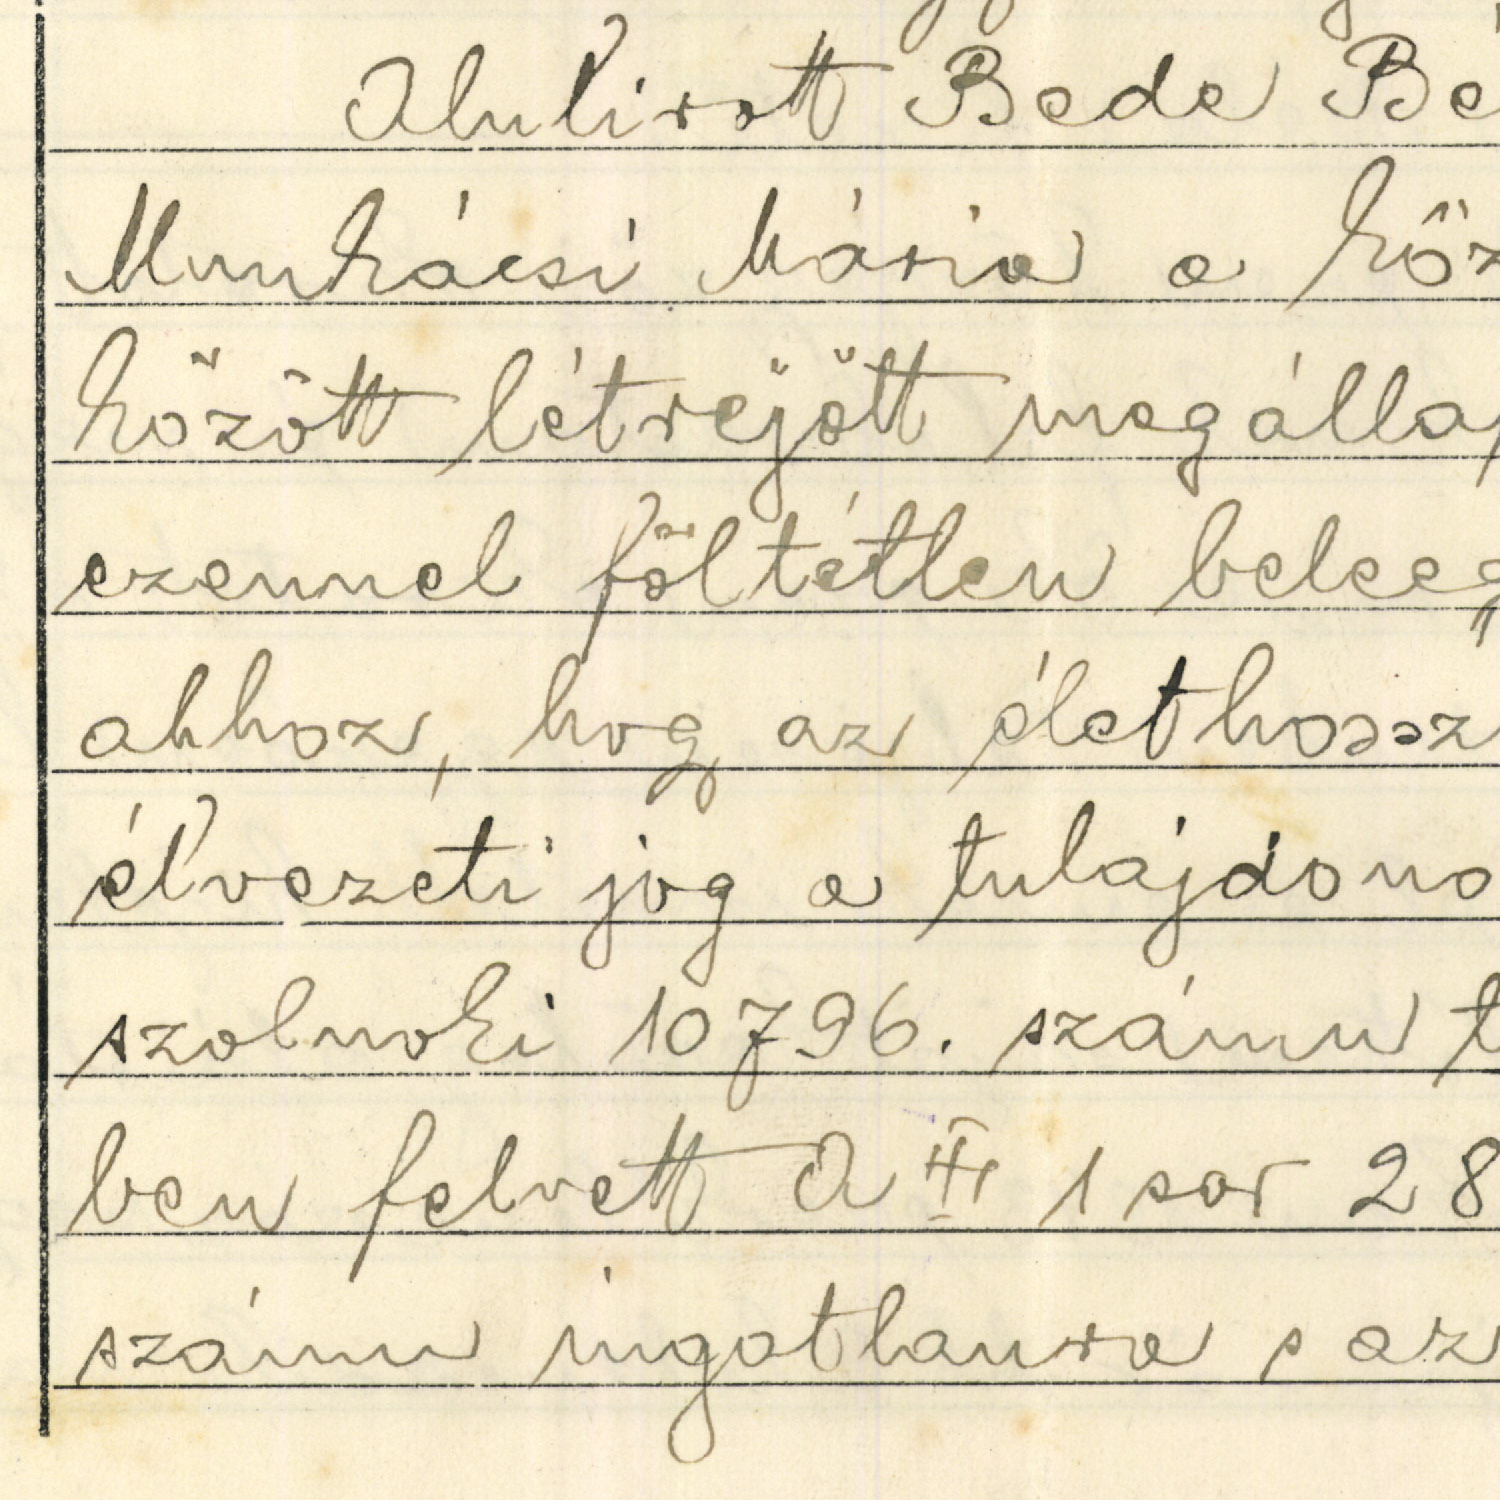 Alulirott Bede Bé
Munkácsi Mária a köz
között létrejött megállap
ezennel föltétlen beleeg
ahhoz, hogy az élethossz
élvezeti jog a tulajdono
szolnoki 10796. számu t
ben felvett A III 1 sor 28
számu ingatlanra s az